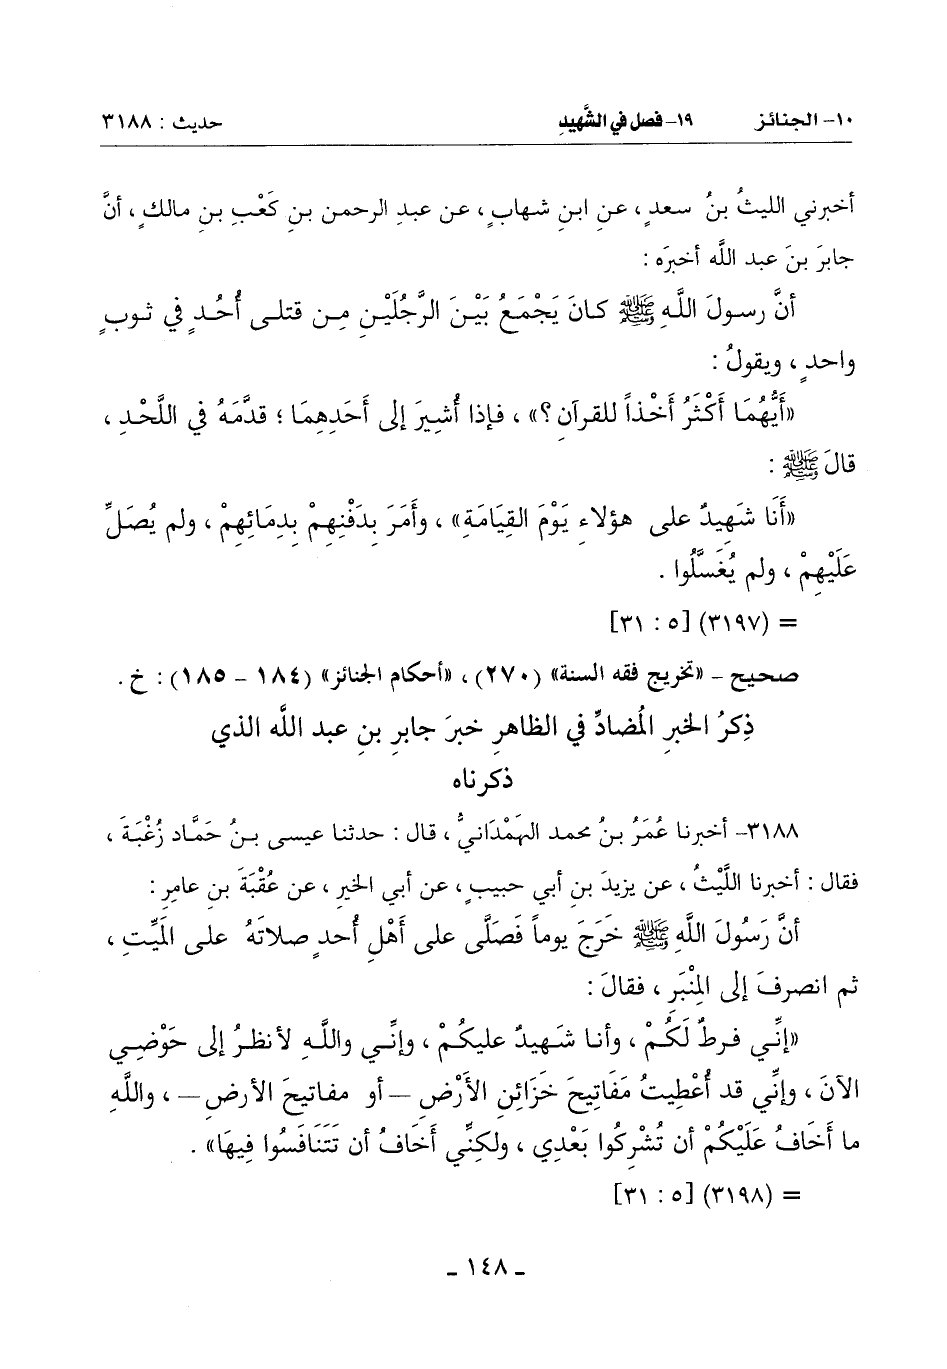 ١٠- الجنائز ١٩- فصل في الشَّهيدِ حديث : ٣١٨٨
أخبرني الليثُ بنُ سعدٍ ، عنِ ابنِ شهابٍ ، عن عبدِ الرحمن بنِ كَعْبِ بنِ مالكٍ ، أنَّ
جابرَ بنَ عبد اللَّه أخبرَه :
أنَّ رسولَ اللَّهِ ﷺ كانَ يَجْمَعُ بَيْنَ الرَّجُلَيْنِ مِن قتلى أُحُدٍ في ثوبٍ
واحدٍ ، ويقولُ :
«أَيُّهُمَا أَكْثَرُ أَخْذاً للقرآنِ ؟» ، فإذا أُشِيرَ إلى أَحَدِهِمَا ؛ قدَّمَهُ في اللَّحْدِ ،
قالَ ﷺ :
«أَنَا شَهِيدٌ على هؤلاءِ يَوْمَ القِيَامَةِ» ، وأَمَرَ بِدَفْنِهِمْ بِدِمَائِهِمْ ، ولم يُصَلِّ
عَلَيْهِمْ ، ولم يُغَسَّلُوا .
= (٣١٩٧) [٥ : ٣١]
صحيح - «تخريج فقه السنة» (٢٧٠) ، «أحكام الجنائز» (١٨٤ - ١٨٥) : خ .
ذِكرُ الخبرِ المُضادِّ في الظاهرِ خبرَ جابرِ بنِ عبد اللَّه الذي
ذكرناه
٣١٨٨- أخبرنا عُمَرُ بنُ محمد الهَمْدَانيُّ ، قال : حدثنا عيسى بنُ حَمَّاد زُغْبَةَ ،
فقال : أخبرنا اللَّيْثُ ، عن يزيدَ بنِ أبي حبيبٍ ، عن أبي الخيرِ ، عن عُقْبَةَ بنِ عامرٍ :
أنَّ رَسُولَ اللَّهِ ﷺ خَرَجَ يوماً فَصَلَّى على أَهْلِ أُحدٍ صلاتَهُ على المَيِّتِ ،
ثم انصرفَ إلى المِنْبَرِ ، فقالَ :
«إنِّي فرطٌ لَكُمْ ، وأنا شَهيدٌ عليكُمْ ، وإنِّي واللَّهِ لأنظرُ إلى حَوْضِي
الآنَ ، وإنِّي قد أُعْطِيتُ مَفَاتِيحَ خَزَائِنِ الأَرْضِ – أو مفاتيحَ الأرضِ – ، واللَّهِ
ما أَخَافُ عَلَيْكُمْ أن تُشْرِكُوا بَعْدِي ، ولكِنِّي أَخَافُ أن تَتَنَافَسُوا فِيهَا» .
= (٣١٩٨) [٥ : ٣١]
- ١٤٨ -